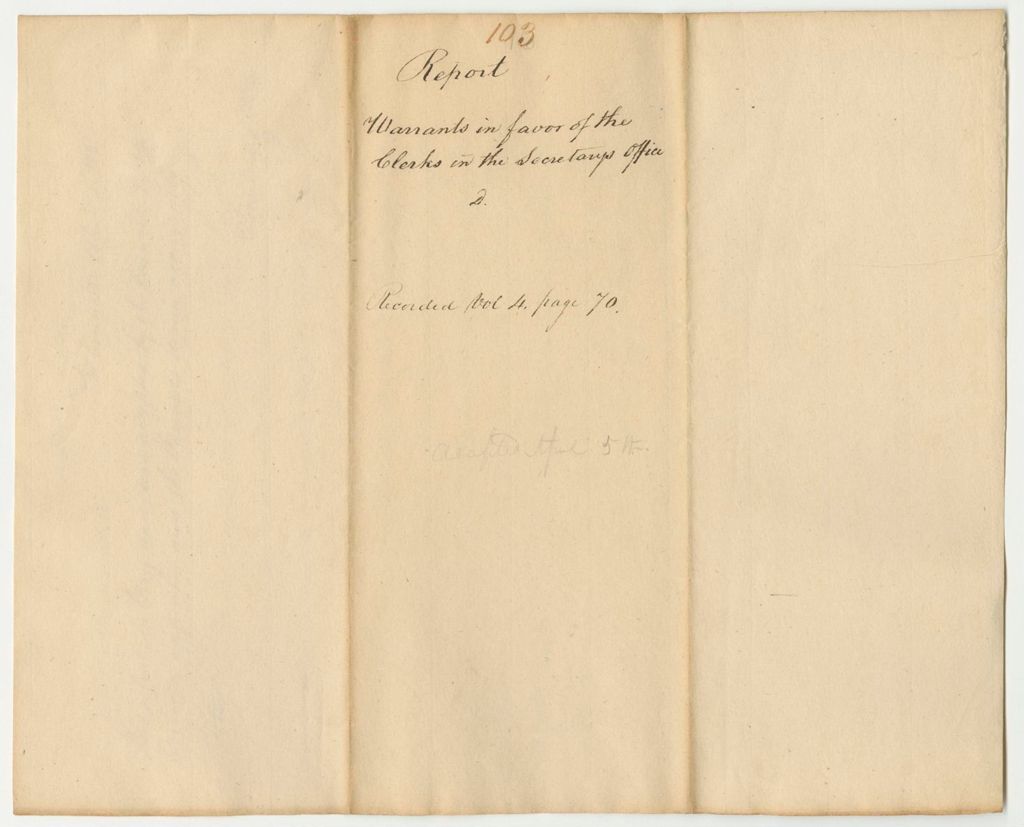 103
Report
Warrants in favor of the
Clerks in the Secretarys Office
D.
Recorded Vol 4. page 70.
5th